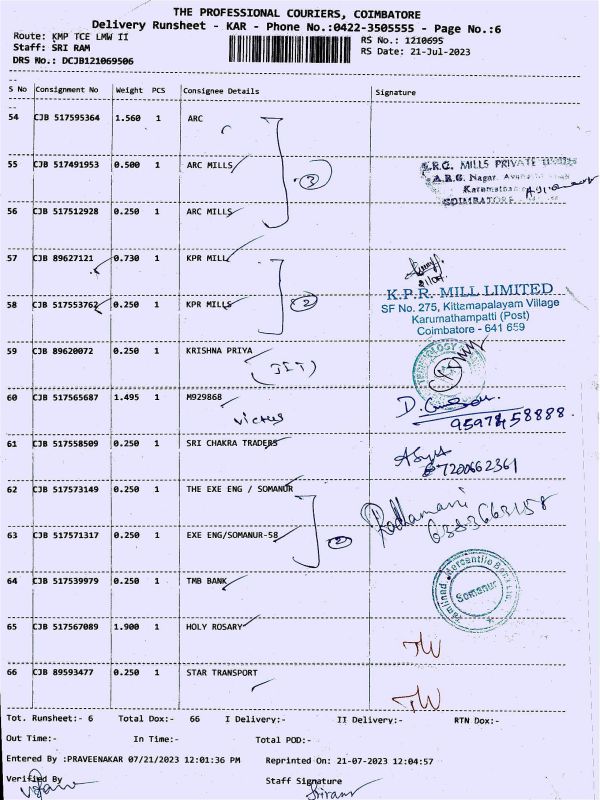 THE PROFESSIONAL COURIERS, COIMBATORE
Delivery Runsheet - KAR - Phone No.:0422-3505555 - Page No.:6
Route: KMP TCE LMW II
RS No.: 1210695
Staff: SRI RAM
RS Date: 21-Jul-2023
DRS No.: DCJB121069506
S No Consignment No Weight PCS Consignee Details Signature
54 CJB 517595364 1.560 1 ARC
55 CJB 517491953 0.500 1 ARC MILLS
3
A.R.G. Nagar,
Karumathampatti
COIMBATORE
56 CJB 517512928 0.250 1 ARC MILLS
57 CJB 89627121 0.730 1 KPR MILL
K.P.R. MILL LIMITED
58 CJB 517553762 0.250 1 KPR MILLS
2
SF No. 275, Kittampalayam Village
Karumathampatti (Post)
Coimbatore - 641 659
59 CJB 89620072 0.250 1 KRISHNA PRIYA
(JIT)
60 CJB 517565687 1.495 1 M929868
victus
9597458888
61 CJB 517558509 0.250 1 SRI CHAKRA TRADERS
7200662361
62 CJB 517573149 0.250 1 THE EXE ENG / SOMANUR
Radhamani
6383663158
63 CJB 517571317 0.250 1 EXE ENG/SOMANUR-58
2
64 CJB 517539979 0.250 1 TMB BANK
Tamilnad Mercantile Bank Ltd.
Somanur
65 CJB 517567089 1.900 1 HOLY ROSARY
TW
66 CJB 89593477 0.250 1 STAR TRANSPORT
TW
Tot. Runsheet:- 6 Total Dox:- 66 I Delivery:- II Delivery:- RTN Dox:-
Out Time:- In Time:- Total POD:-
Entered By :PRAVEENAKAR 07/21/2023 12:01:36 PM Reprinted On: 21-07-2023 12:04:57
Verified By Staff Signature
Sriram